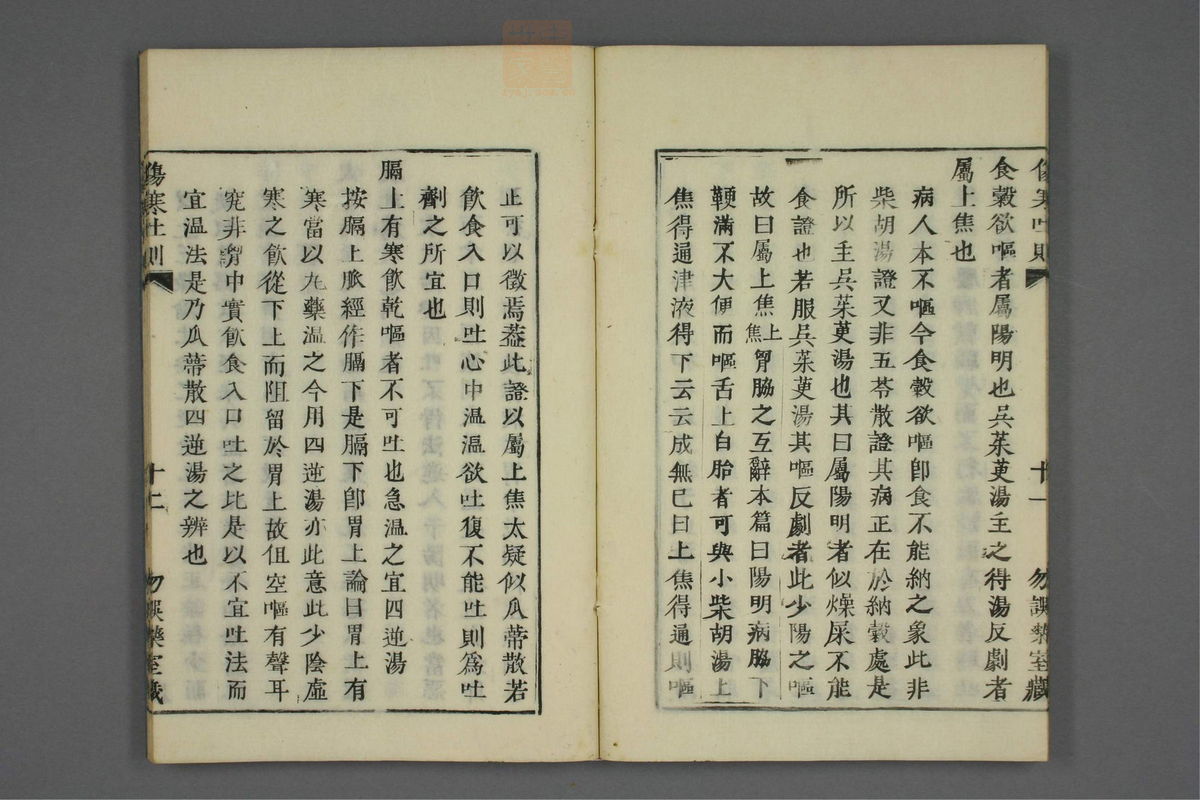 傷寒吐則
十一
勿誤藥室藏
食穀欲嘔者屬陽明也吳茱萸湯主之得湯反劇者
屬上焦也
病人本不嘔今食穀欲嘔卽食不能納之象此非
柴胡湯證又非五苓散證其病正在於納穀處是
所以主吳茱萸湯也其曰屬陽明者似燥屎不能
食證也若服吳茱萸湯其嘔反劇者此少陽之嘔
故曰屬上焦上焦胷脇之互辭本篇曰陽明病脇下
鞕滿不大便而嘔舌上白胎者可與小柴胡湯上
焦得通津液得下云云成無已曰上焦得通則嘔
止可以徵焉葢此證以屬上焦太疑似瓜蒂散若
飮食入口則吐心中溫溫欲吐復不能吐則爲吐
劑之所宜也
膈上有寒飮乾嘔者不可吐也急溫之宜四逆湯
按膈上脈經作膈下是膈下卽胃上論曰胃上有
寒當以丸藥溫之今用四逆湯亦此意此少陰虛
寒之飮從下上而阻留於胃上故但空嘔有聲耳
究非胷中實飮食入口吐之比是以不宜吐法而
宜溫法是乃瓜蒂散四逆湯之辨也
傷寒吐則
十二
勿誤藥室藏